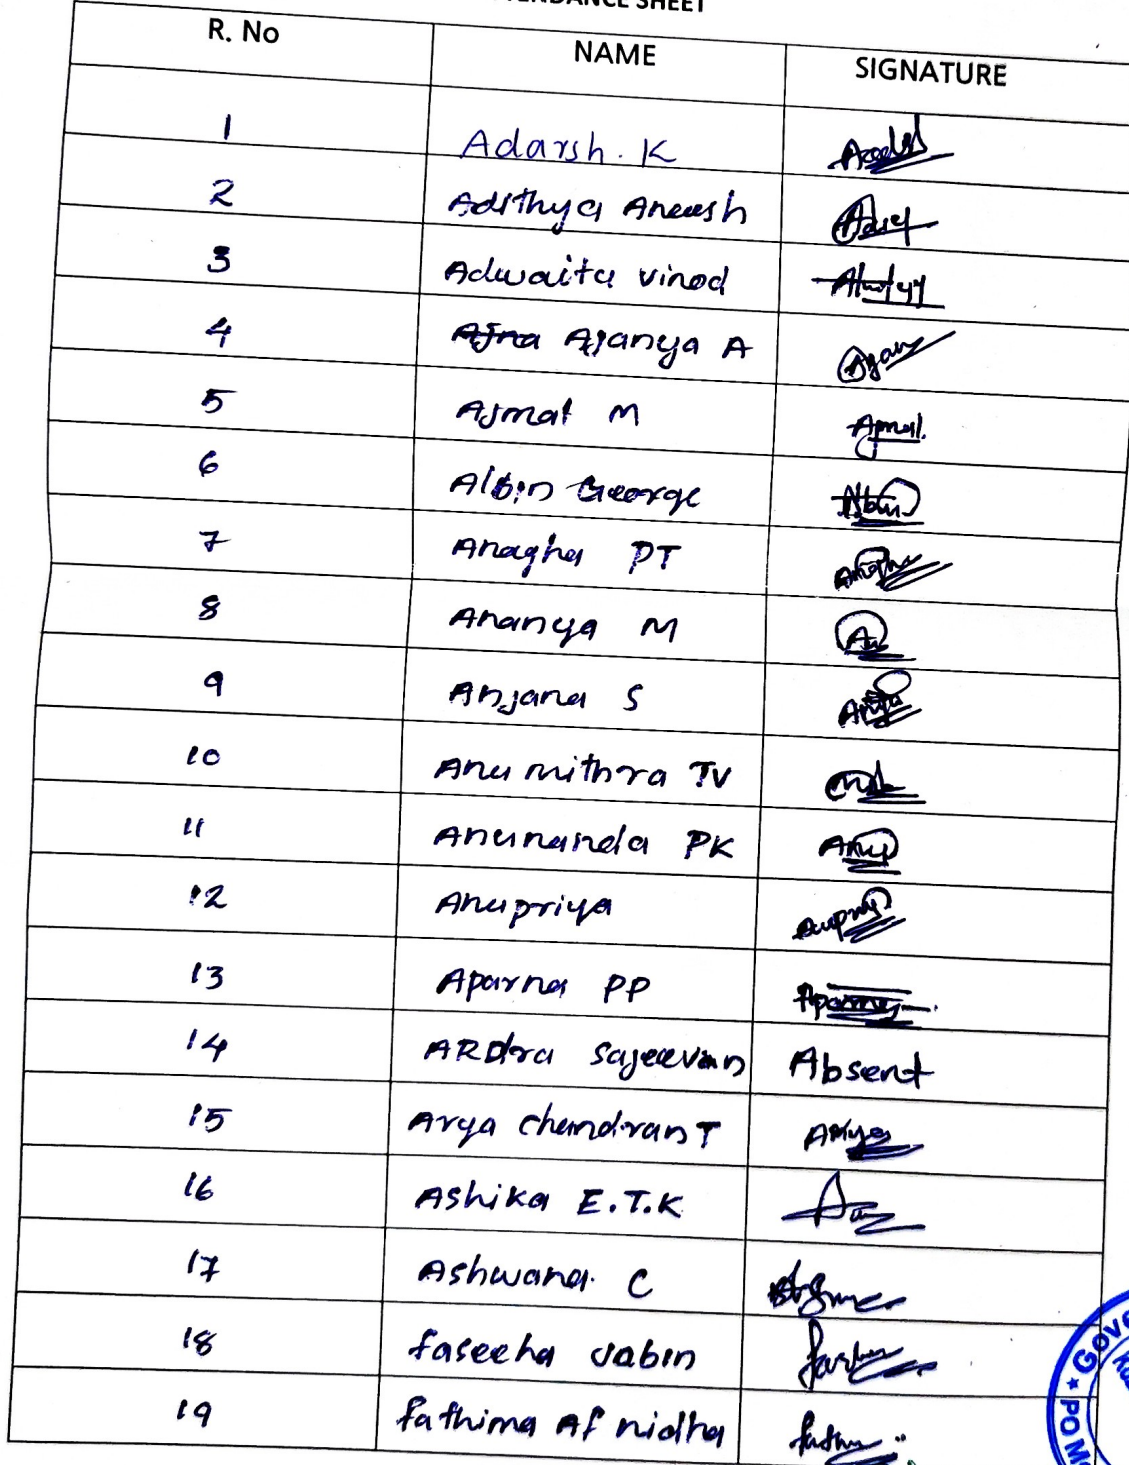 ATTENDANCE SHEET
R. No NAME SIGNATURE
1 Adarsh. K
2 Adithya Aneesh
3 Adwaita vinod
4 Ajna Ajanya A
5 Ajmal M Ajmal.
6 Albin George Albin
7 Anagha PT Anagha
8 Ananya M An
9 Anjana S
10 Anumithra TV
11 Anunanda PK Anup
12 Anupriya Anupriy
13 Aparna PP Aparna
14 ARDra Sajeevan Absent
15 Arya chandran T Arya
16 Ashika E.T.K
17 Ashwana. C
18 faseeha Jabin
19 fathima Af nidha
Gove
PO Mo